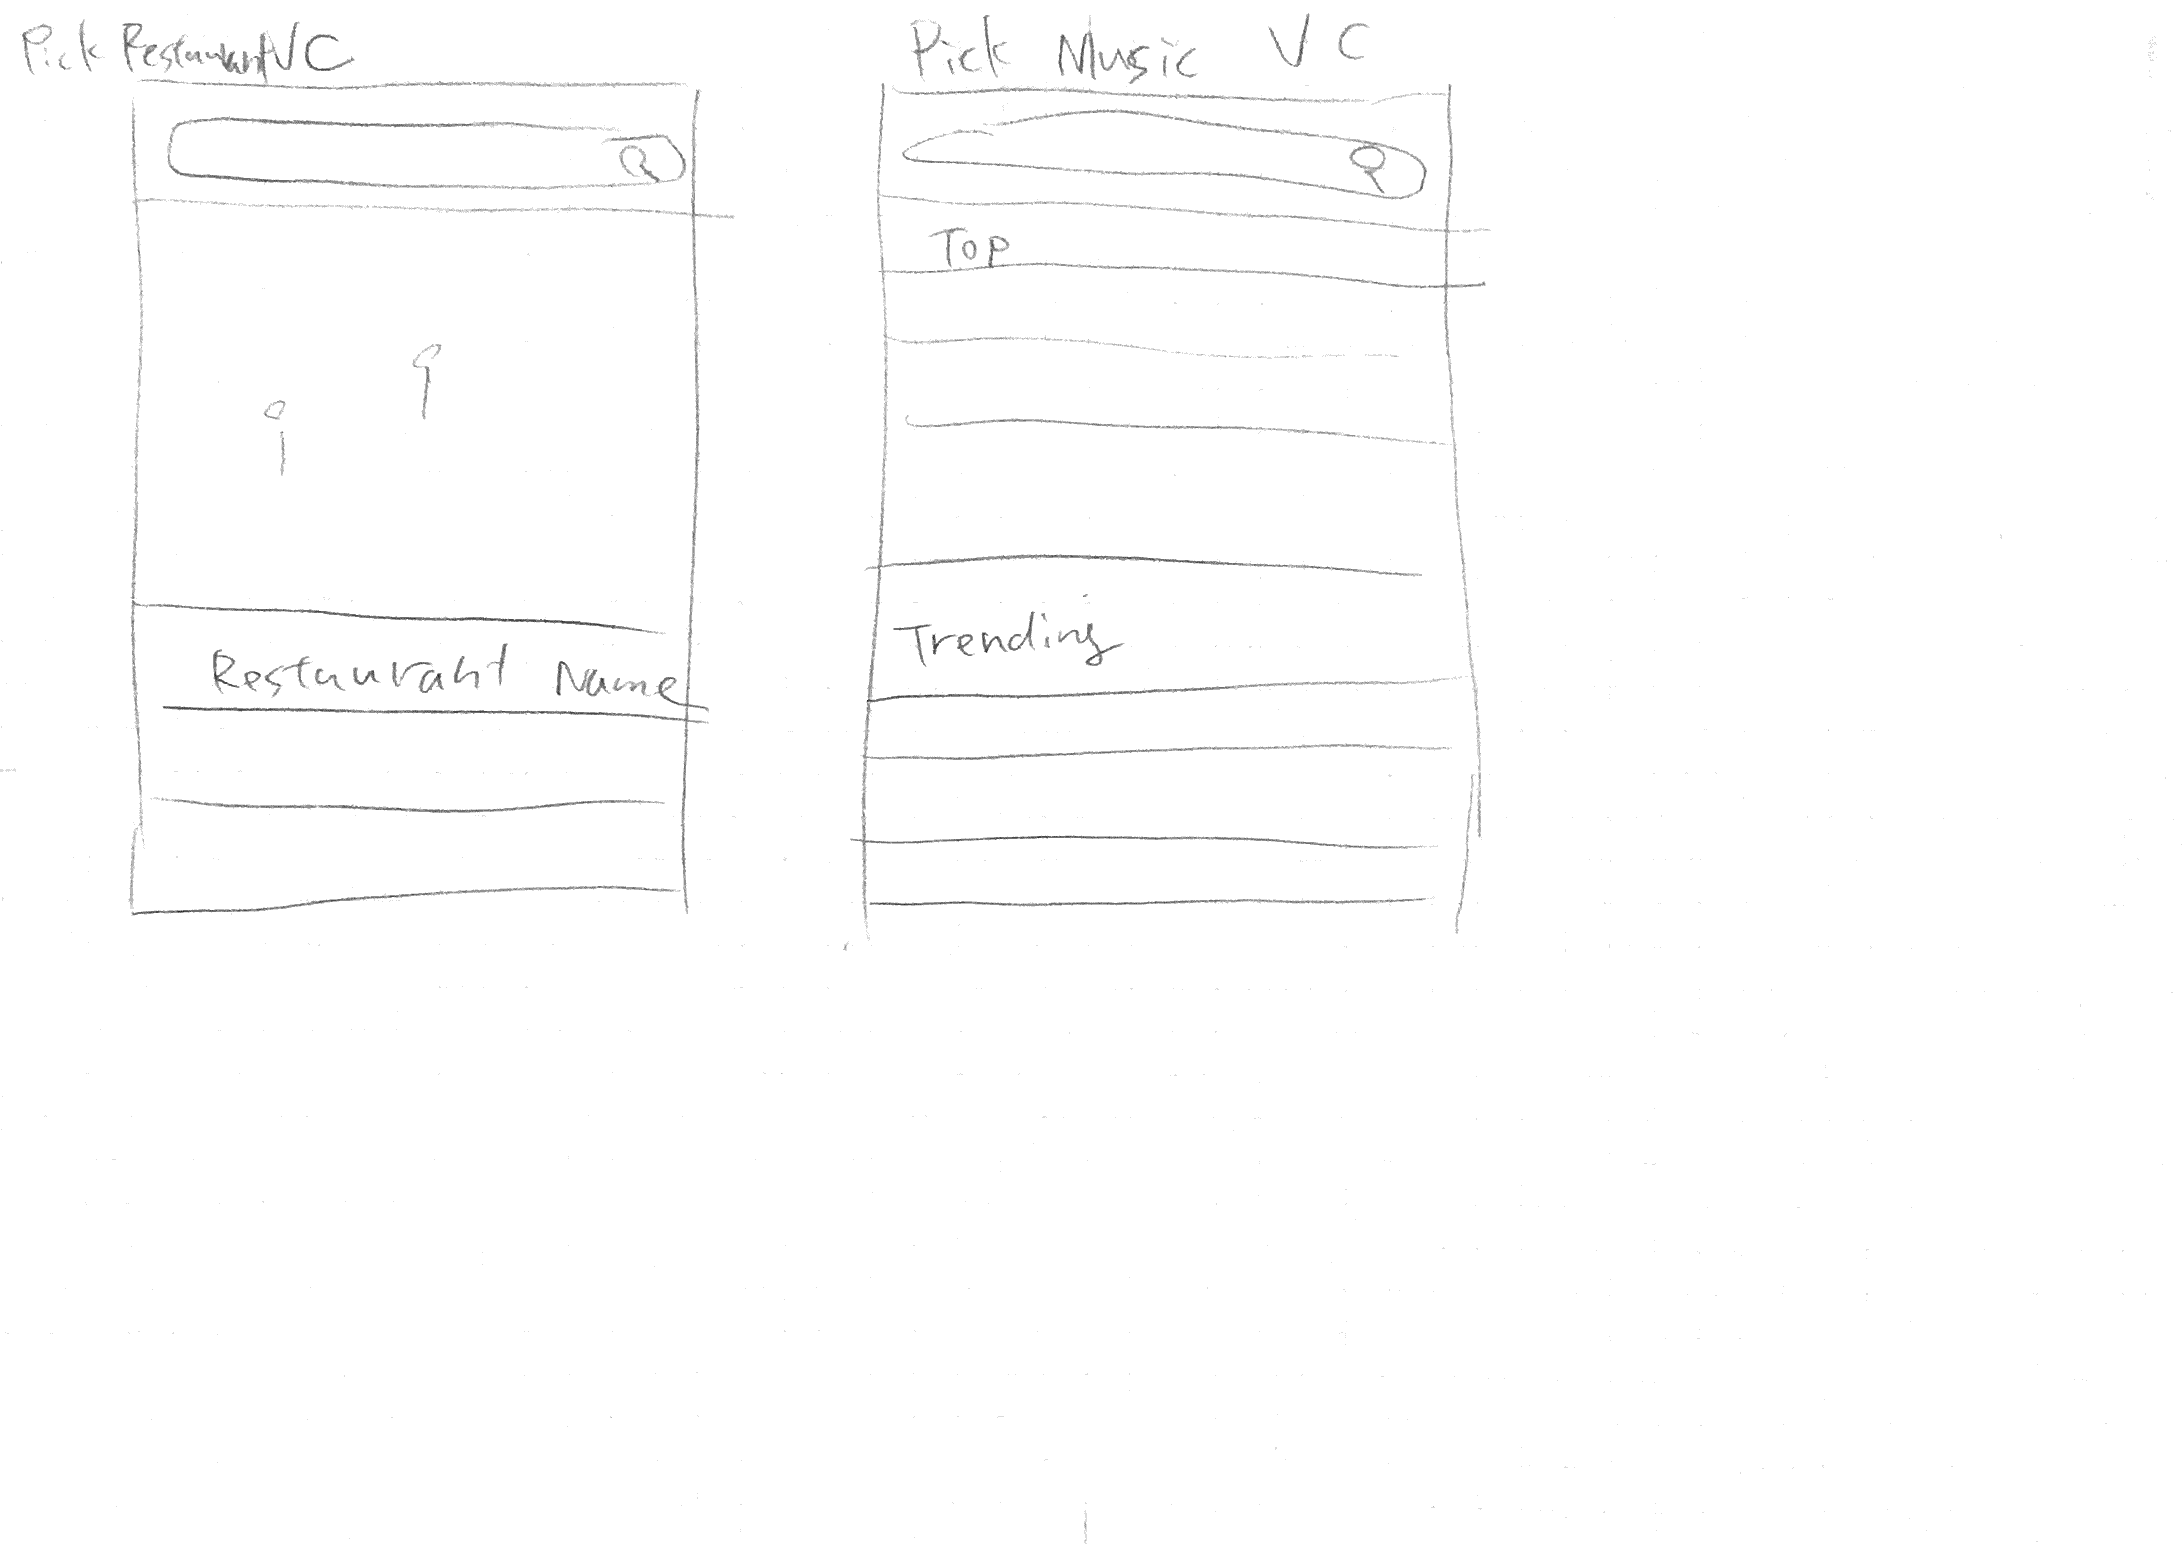 Pick Restaurant VC
Restaurant Name
Pick Music VC
Top
Trending